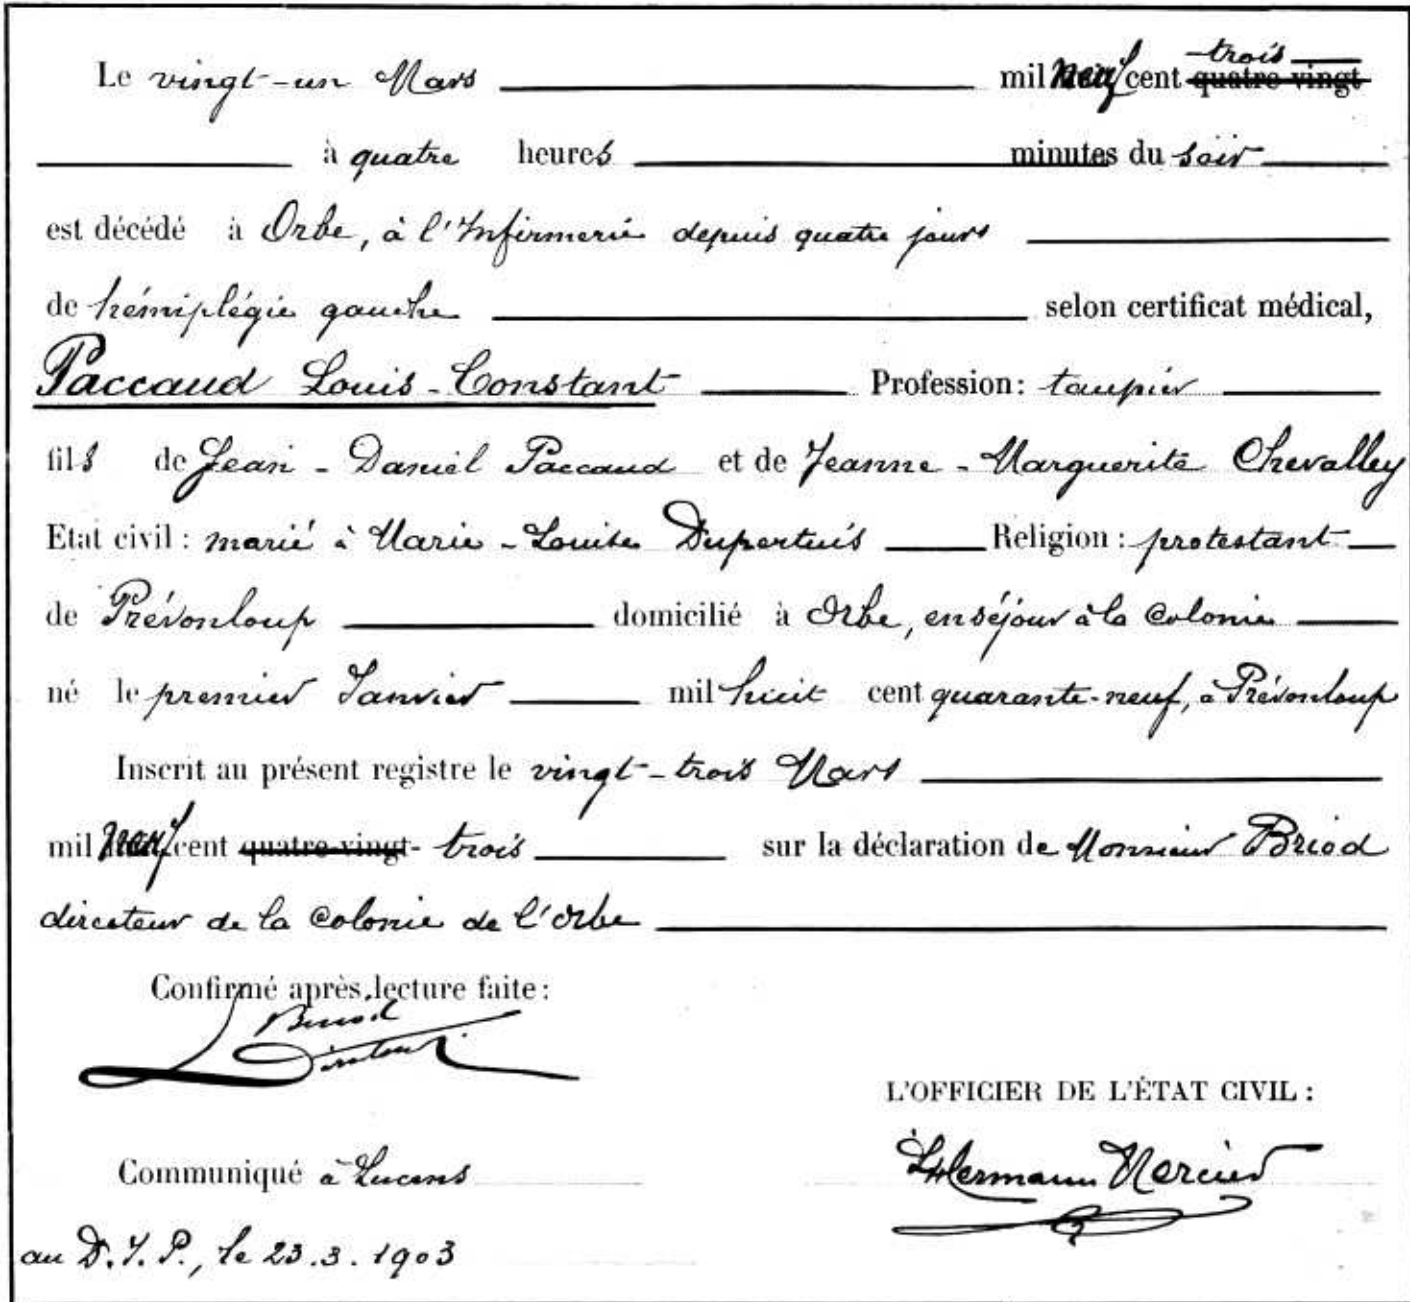 Le vingt-un Mars mil neuf cent trois quatre-vingt
à quatre heures minutes du soir
est décédé à Orbe, à l'Infirmerie depuis quatre jours
de hémiplégie gauche selon certificat médical,
Paccaud Louis-Constant Profession: taupier
fils de Jean-Daniel Paccaud et de Jeanne-Marguerite Chevalley
Etat civil: marié à Marie-Louise Dupertuis Religion: protestant
de Prévonloup domicilié à Orbe, en séjour à la Colonie
né le premier Janvier mil huit cent quarante-neuf, à Prévonloup
Inscrit au présent registre le vingt-trois Mars
mil neuf cent quatre-vingt- trois sur la déclaration de Monsieur Briod
directeur de la Colonie de l'Orbe
Confirmé après lecture faite:
Briod
Directeur
L'OFFICIER DE L'ÉTAT CIVIL:
Communiqué à Lucens
Hermann Mercier
au D.J.P., le 23.3.1903